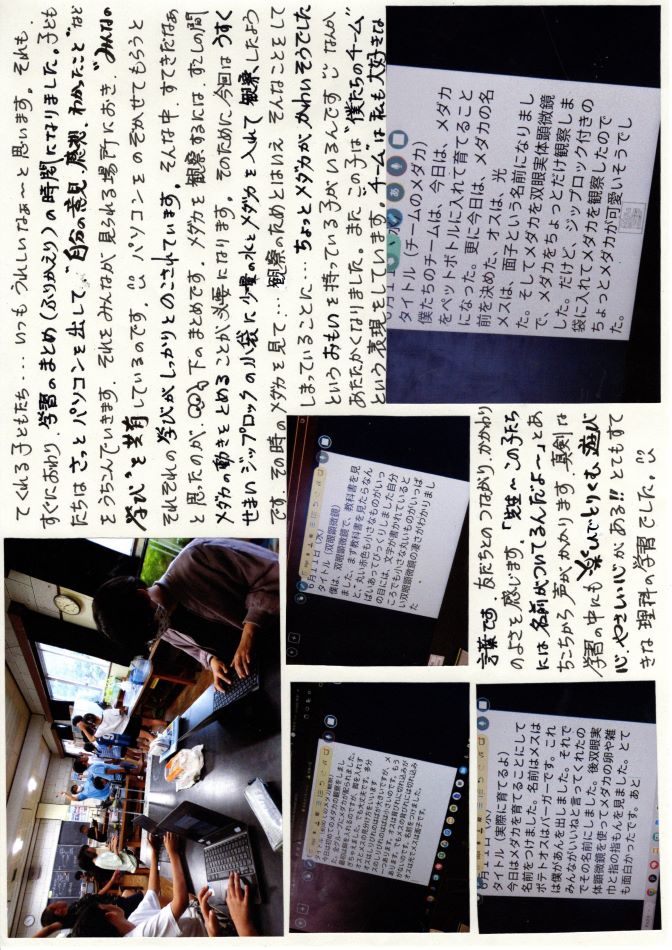 てくれる子どもたち…いつもうれしいなぁ〜と思います。それも
すぐにおわり、学習のまとめ(ふりかえり)の時間になりました。子ども
たちは、さっとパソコンを出して、"自分の意見、感想、わかったこと"など
をうちこんでいきます。それをみんなが見られる場所におき、"みんなの
学び"を共有しているのです。パソコンをのぞかせてもらうと
それぞれの学びがしっかりとのこされています。そんな中、すてきだなぁ
と思ったのが、下のまとめです。メダカを観察するには、少しの間
メダカの動きをとめることが必要になります。そのために今回は、うすく
せまいジップロックの小袋に少量の水とメダカを入れて観察したよう
です。その時のメダカを見て…観察のためとはいえ、そんなことをして
しまっていることに…ちょっとメダカが、かわいそうでした
というおもいを持っている子がいるんです なんか
あたたかくなりました。またこの子は"僕たちのチーム"
という表現をしています。チーム"は私も大好きな
タイトル(チームのメダカ)
僕たちのチームは、今日は、メダカ
をペットボトルに入れて育てること
になった。更に今日は、メダカの名
前を決めた、オスは、光
メスは、面子という名前になりまし
た。そしてメダカを双眼実体顕微鏡
で、メダカをちょっとだけ観察しま
した。だけど、ジップロック付きの
袋に入れてメダカを観察したので
ちょっとメダカが可愛いそうでし
た。
言葉です 友だちとのつながり、かかわり
のよさを感じます。「先生〜この子たち
には名前がついてるんだよ〜」とあ
ちこちから声がかかります 真剣な
学習の中にも楽しんでとりくむ、遊び
心、やさしい心がある!! とてもすて
きな理科の学習でした。
6月11日(水)
タイトル(双眼顕微鏡)
僕は、双眼顕微鏡で、教科書を見
ました。まず教科書を見たらなん
と、丸い赤色も小さなものがいっ
ぱいあってびっくりしました自分
の目には、文字が書かれていると
ころでも小さな丸いものがいっぱ
い双眼顕微鏡の凄さがわかりまし
た
タイトル(実際に育てるよ)
今日はメダカを育てることにして
名前をつけました。名前はメスは
ポテトオスはバーガーです。これ
は僕があんを出しました。それで
みんながいいねと言ってくれたの
でその名前にしました。後双眼実
体顕微鏡を使ってメダカの卵や雑
巾と指の指もんを見ました。とて
も面白かったです。あと